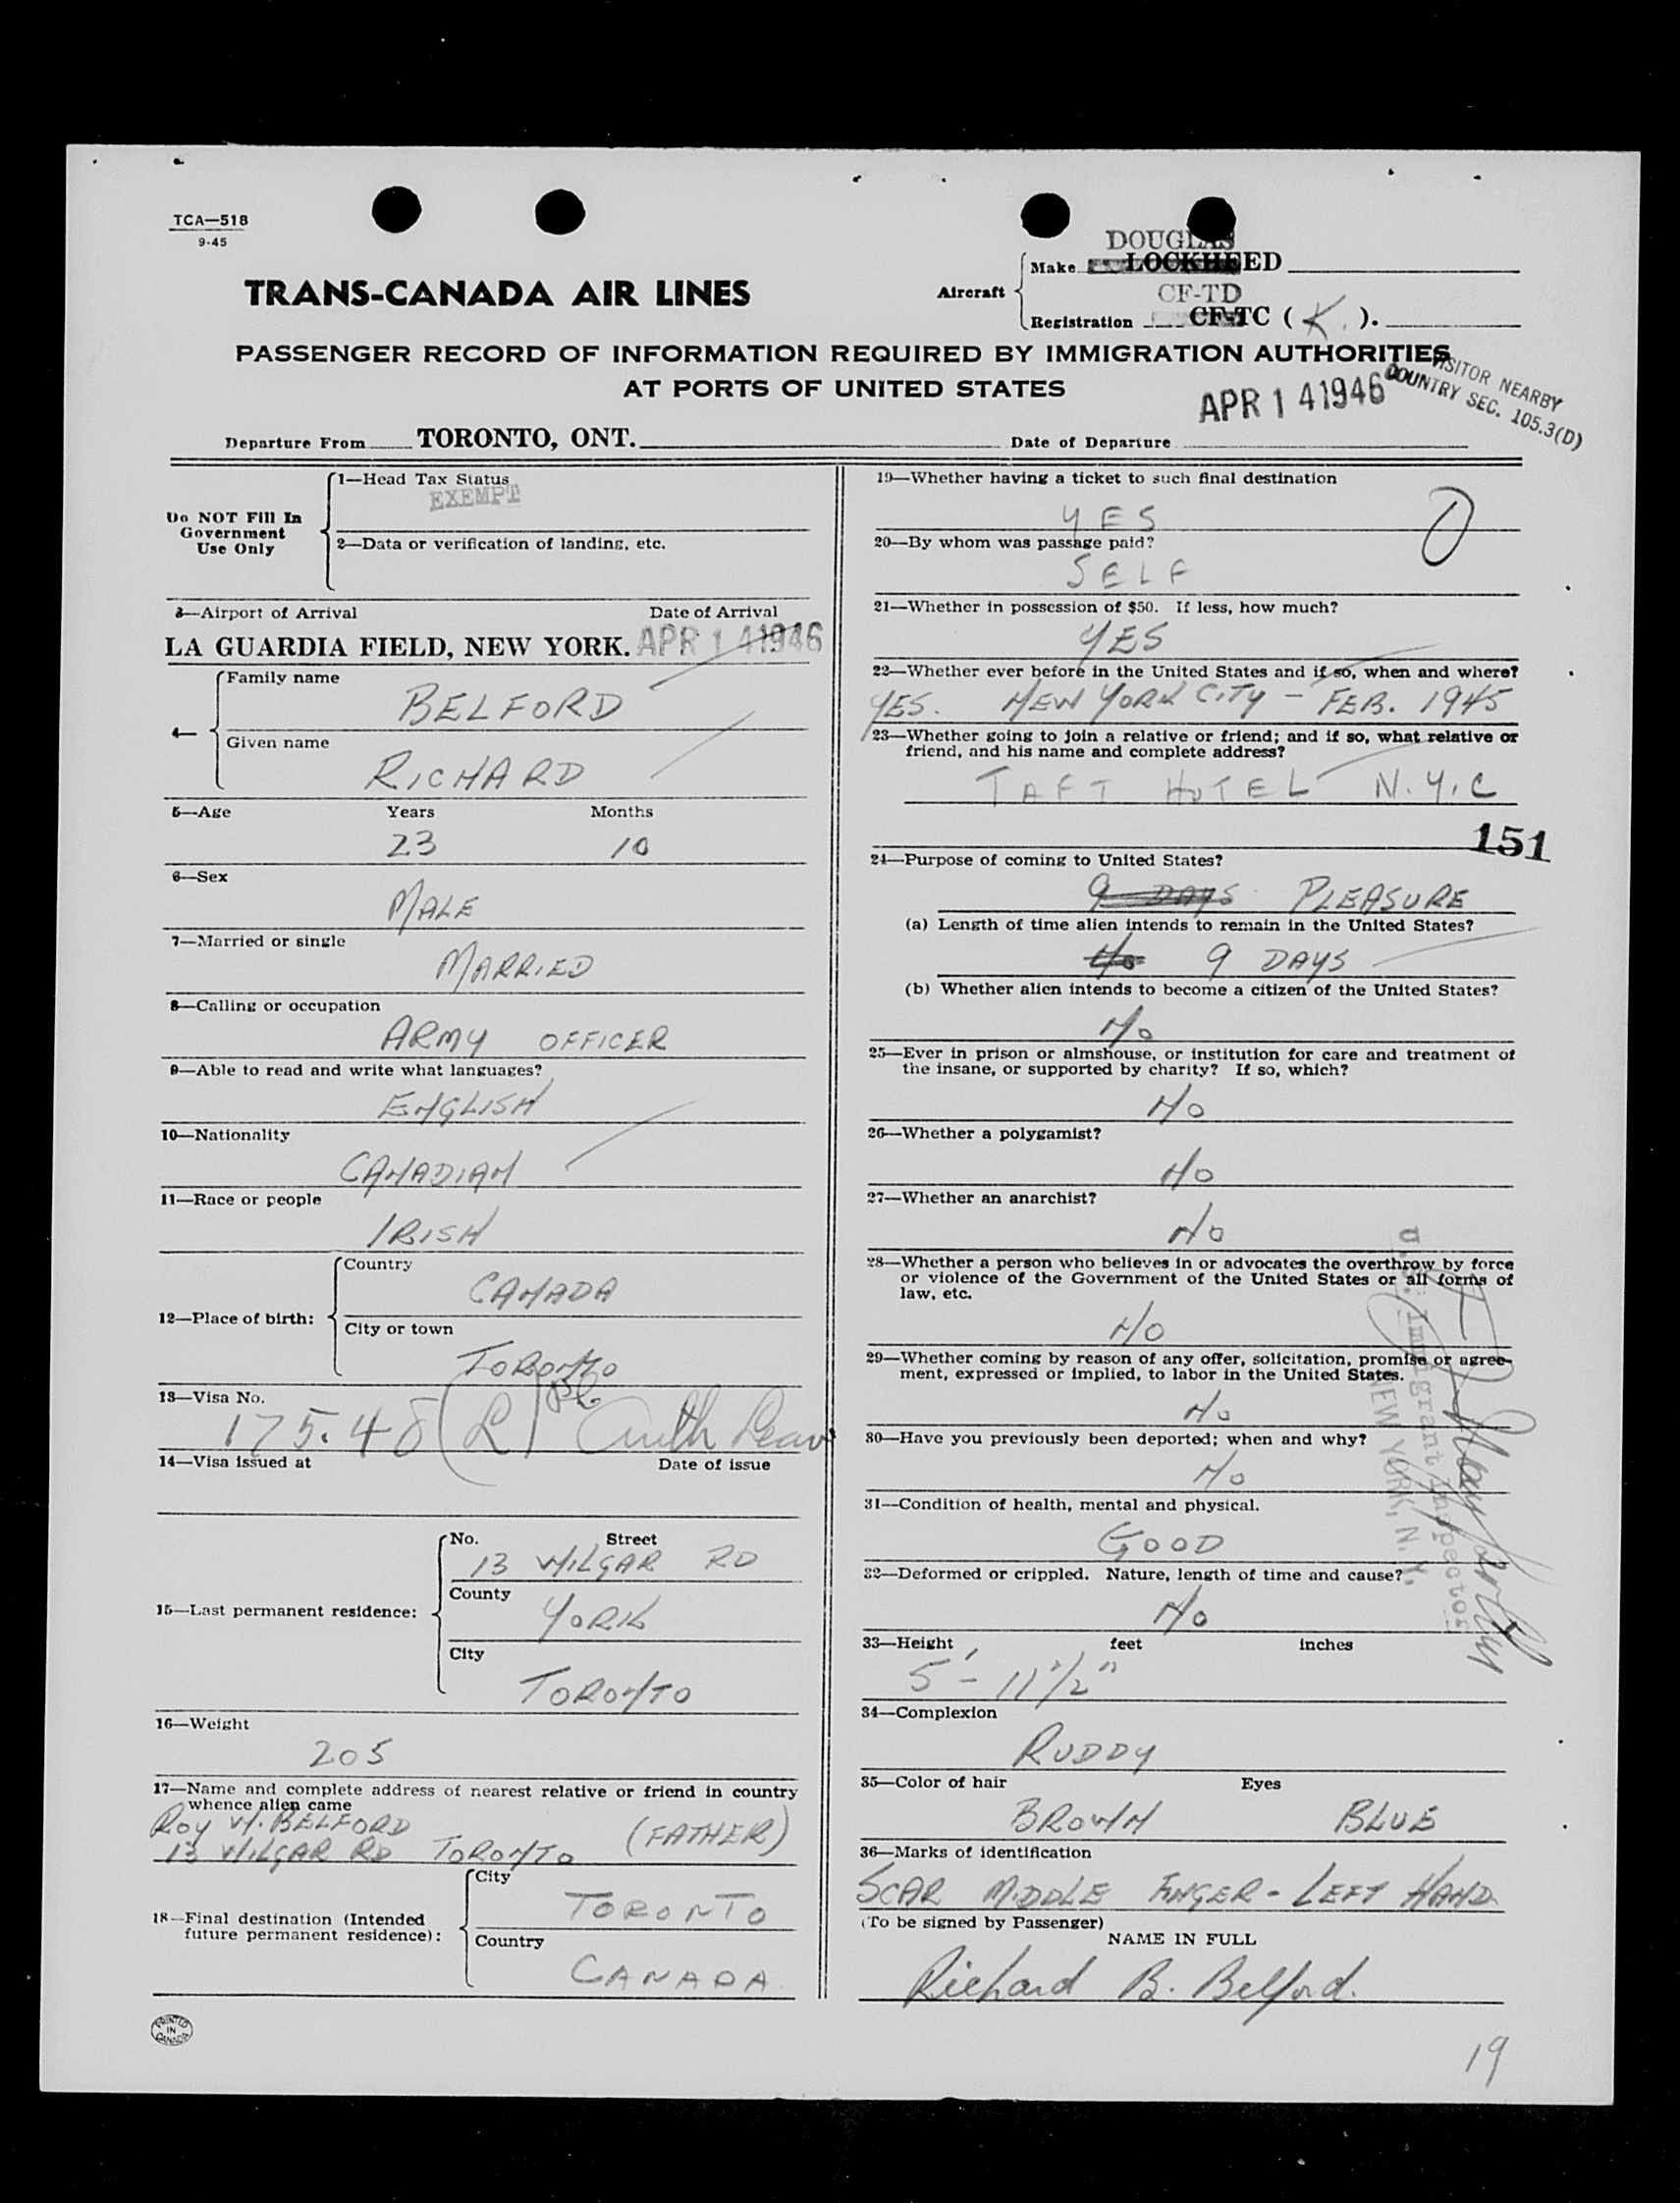 TCA—518
9-45
TRANS-CANADA AIR LINES
Aircraft
DOUGLAS
Make LOCKHEED
CF-TD
Registration CF-TC ( K. ).
PASSENGER RECORD OF INFORMATION REQUIRED BY IMMIGRATION AUTHORITIES
AT PORTS OF UNITED STATES
APR 1 4 1946
VISITOR NEARBY
COUNTRY SEC. 105.3(D)
Departure From TORONTO, ONT.
Date of Departure
Do NOT Fill In
Government
Use Only
1—Head Tax Status
EXEMPT
2—Data or verification of landing, etc.
3—Airport of Arrival Date of Arrival
LA GUARDIA FIELD, NEW YORK. APR 1 4 1946
4—
Family name
BELFORD
Given name
RICHARD
5—Age Years Months
23 10
6—Sex
MALE
7—Married or single
MARRIED
8—Calling or occupation
ARMY OFFICER
9—Able to read and write what languages?
ENGLISH
10—Nationality
CANADIAN
11—Race or people
IRISH
12—Place of birth:
Country
CANADA
City or town
TORONTO
13—Visa No.
175.48 (L) Auth Leave
14—Visa issued at Date of issue
15—Last permanent residence:
No. Street
13 WILGAR RD
County
YORK
City
TORONTO
16—Weight
205
17—Name and complete address of nearest relative or friend in country
whence alien came
ROY W. BELFORD
13 WILGAR RD TORONTO (FATHER)
18—Final destination (Intended
future permanent residence):
City
TORONTO
Country
CANADA
PRINTED
IN
CANADA
19—Whether having a ticket to such final destination
YES
20—By whom was passage paid?
SELF
21—Whether in possession of $50. If less, how much?
YES
22—Whether ever before in the United States and if so, when and where?
YES. NEW YORK CITY – FEB. 1945
23—Whether going to join a relative or friend; and if so, what relative or
friend, and his name and complete address?
TAFT HOTEL N.Y.C
151
24—Purpose of coming to United States?
9 DAYS PLEASURE
(a) Length of time alien intends to remain in the United States?
No 9 DAYS
(b) Whether alien intends to become a citizen of the United States?
No
25—Ever in prison or almshouse, or institution for care and treatment of
the insane, or supported by charity? If so, which?
No
26—Whether a polygamist?
No
27—Whether an anarchist?
No
28—Whether a person who believes in or advocates the overthrow by force
or violence of the Government of the United States or all forms of
law, etc.
No
29—Whether coming by reason of any offer, solicitation, promise or agree-
ment, expressed or implied, to labor in the United States.
No
30—Have you previously been deported; when and why?
No
31—Condition of health, mental and physical.
GOOD
32—Deformed or crippled. Nature, length of time and cause?
No
U.S. Immigrant Inspector
NEW YORK, N.Y.
33—Height feet inches
5' – 11 1/2"
34—Complexion
RUDDY
35—Color of hair Eyes
BROWN BLUE
36—Marks of identification
SCAR MIDDLE FINGER – LEFT HAND.
(To be signed by Passenger)
NAME IN FULL
Richard B. Belford.
19